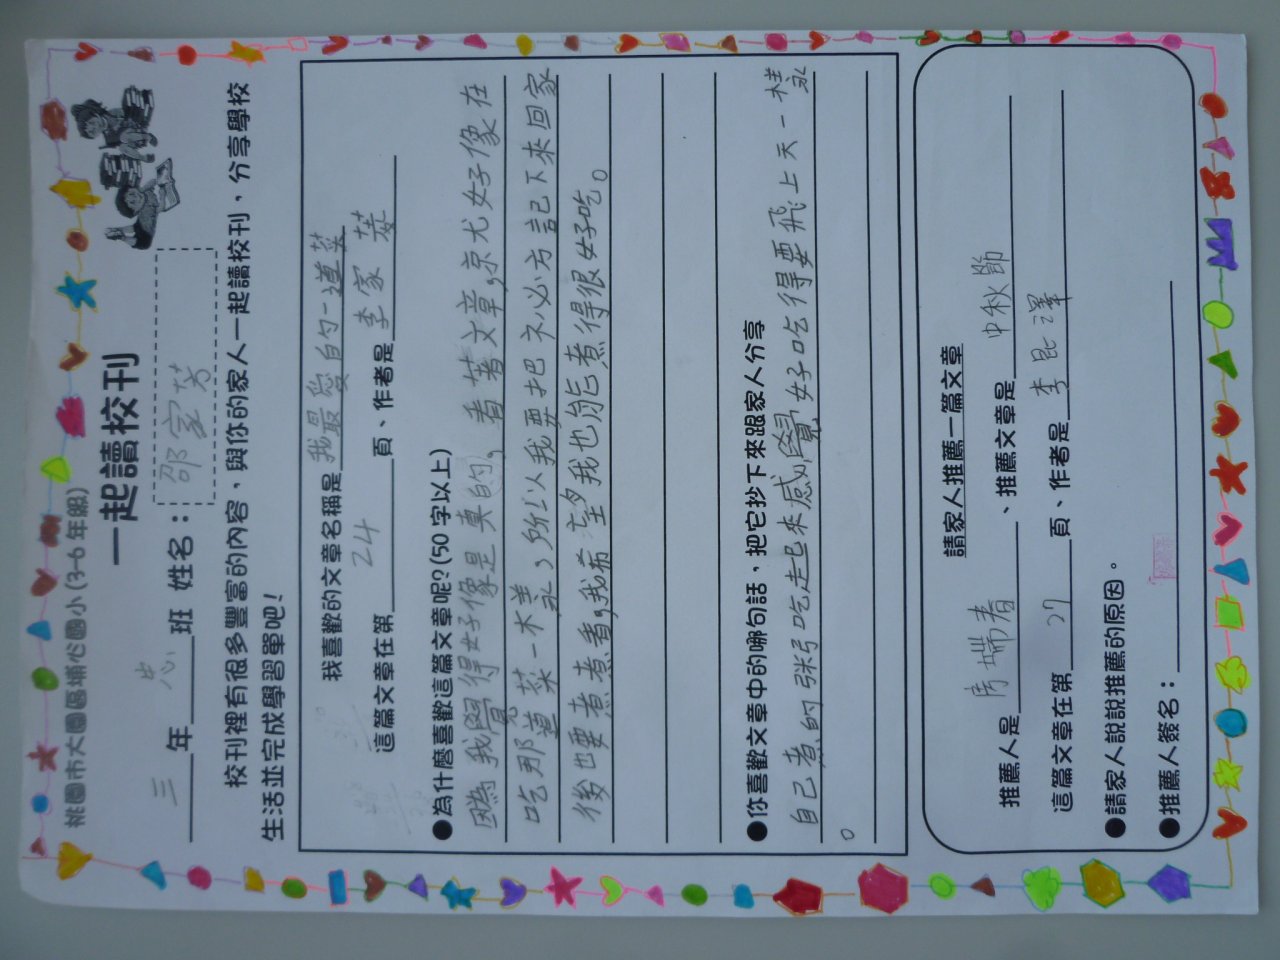 桃園市大園區埔心國小(3-6年級)
一起讀校刊
三年忠班 姓名：邵家芳
校刊裡有很多豐富的內容，與你的家人一起讀校刊，分享學校
生活並完成學習單吧！
我喜歡的文章名稱是我最愛的一道菜
這篇文章在第24頁、作者是李家菉
●為什麼喜歡這篇文章呢?(50字以上)
因為我覺得好像是真的，看著文章，就好像在
吃那道菜一樣，所以我要把方記下來回家
後也要煮煮看，我希望我也能煮得很好吃。
●你喜歡文章中的哪句話，把它抄下來跟家人分享
自己煮的粥吃起來感覺好吃得要飛上天一樣
。
請家人推薦一篇文章
推薦人是房端青、推薦文章是中秋節
這篇文章在第27頁、作者是李昆澤
●請家人說說推薦的原因。
●推薦人簽名：